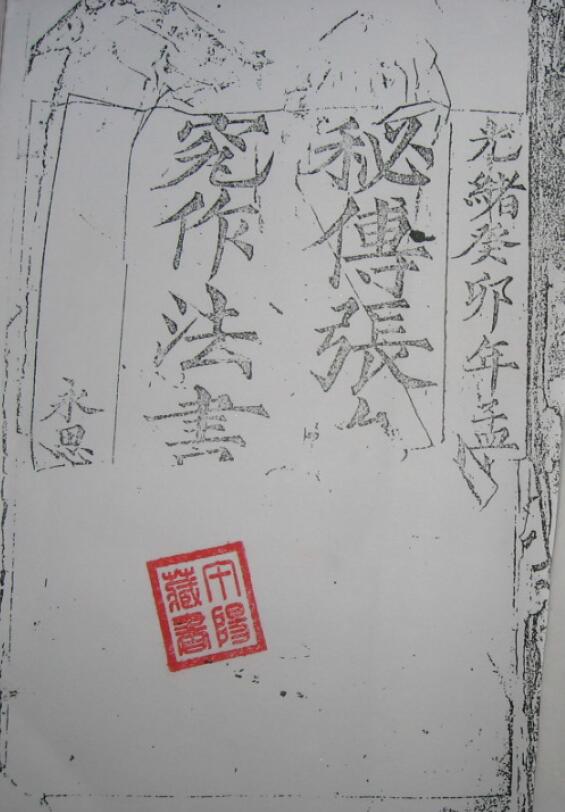 光緒癸卯年孟
秘傳張
作法書
永思
陽
藏書